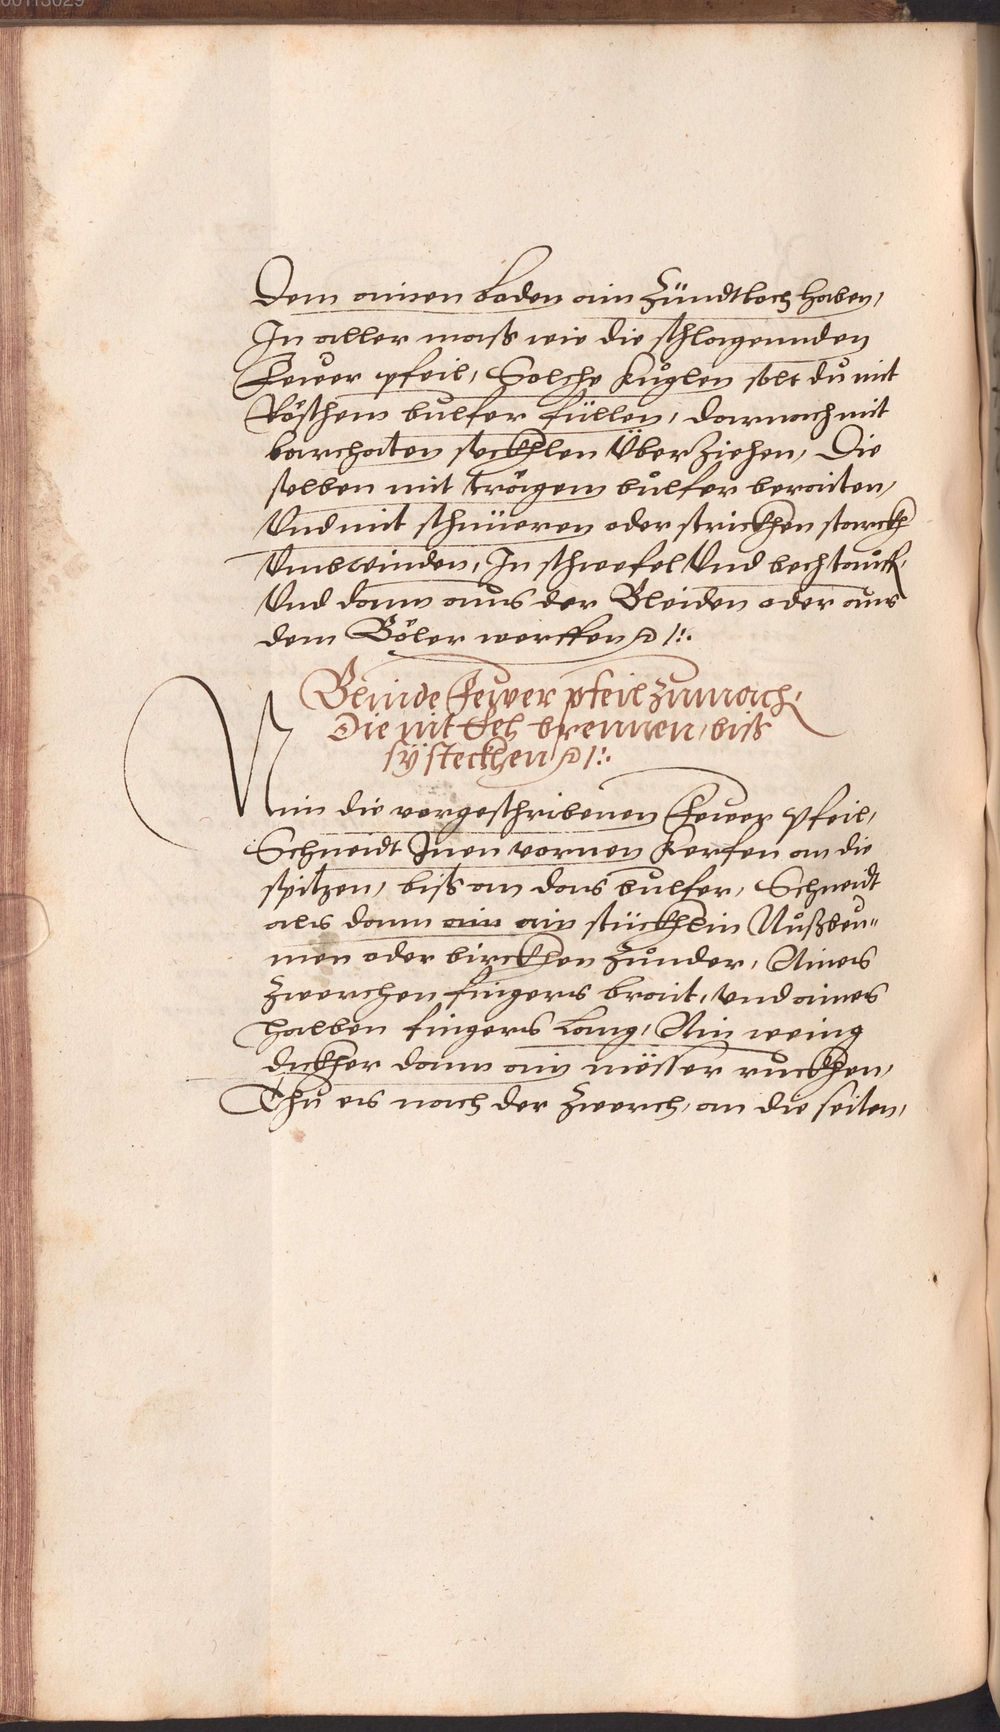 00113029
Dem ainen boden ain Zündtloch haben,
In aller mass wie die schlagennden
Fewer pfeil, Solche kuglen solt du mit
Röschem bulfer füllen, darnach mit
barchaten seckhlen Überziehen, Die
selben mit trägem bulfer beraiten,
Vnd mit schnüeren oder strickhen starckh
Vmbwinden, In schwefel Vnd bech tauck,
Vnd dann aus der Bleiden oder aus
dem Böler werffen
Blinde Fewer pfeil zumach,
Die nit Ehe brennen, biss
sy steckhen
Nim die vorgeschribenen Fewer pfeil,
Schneidt Inen vornen kerfen an die
spitzen, biss an das bulfer, Schneidt
als dann ain ain stückhlin Nußbeu=
men oder birckhen Zunder, Aines
zwerchen fingers brait, vnd aines
halben fingers lang, Ain wenig
dickher dann ain messer ruckhen,
Thu es nach der zwerch, an die seiten,